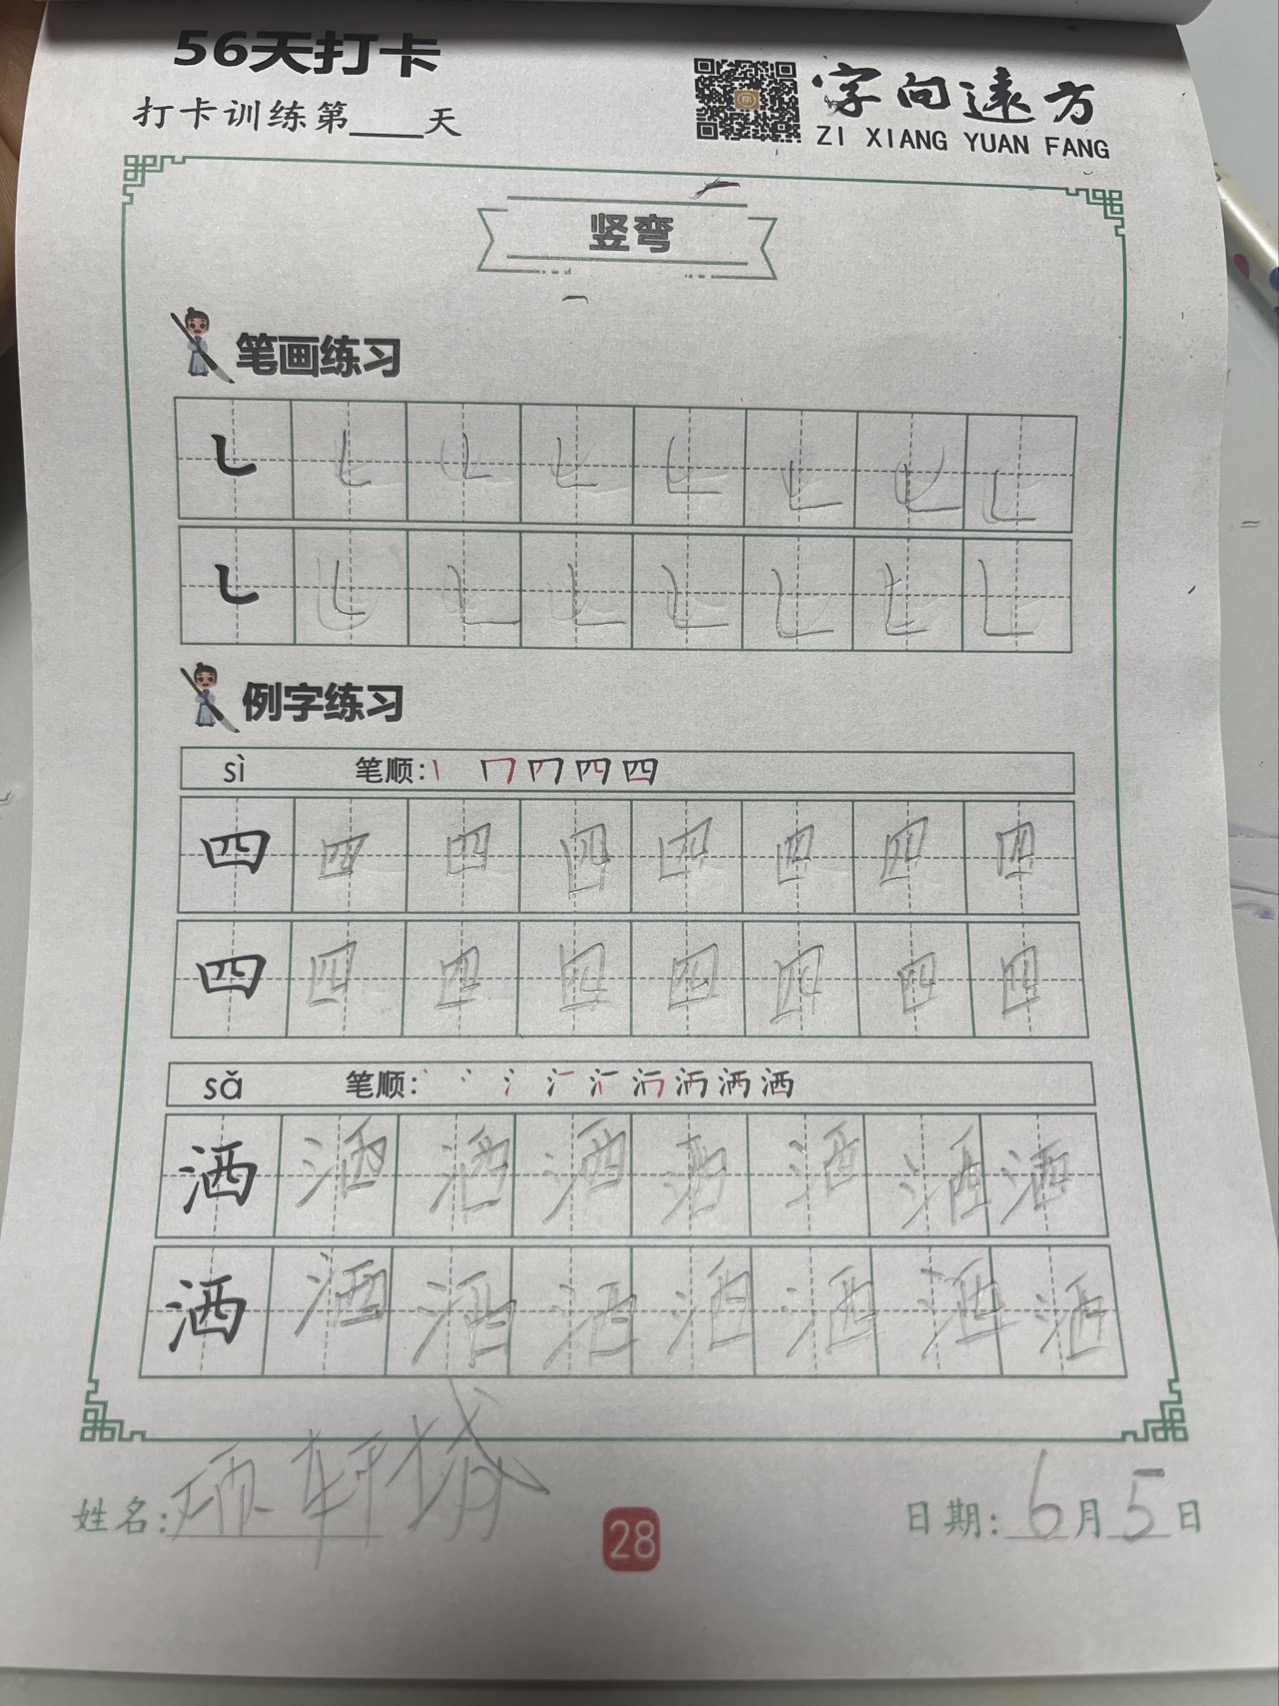 56天打卡
打卡训练第____天
字向远方
ZI XIANG YUAN FANG
竖弯
笔画练习
㇄ ㇄ ㇄ ㇄ ㇄ ㇄ ㇄ ㇄
㇄ ㇄ ㇄ ㇄ ㇄ ㇄ ㇄ ㇄
例字练习
sì 笔顺:
四 四 四 四 四 四 四 四
四 四 四 四 四 四 四 四
sǎ 笔顺:
洒 洒 洒 洒 洒 洒 洒 洒
洒 洒 洒 洒 洒 洒 洒 洒
姓名: 项轩城
28
日期: 6月5日